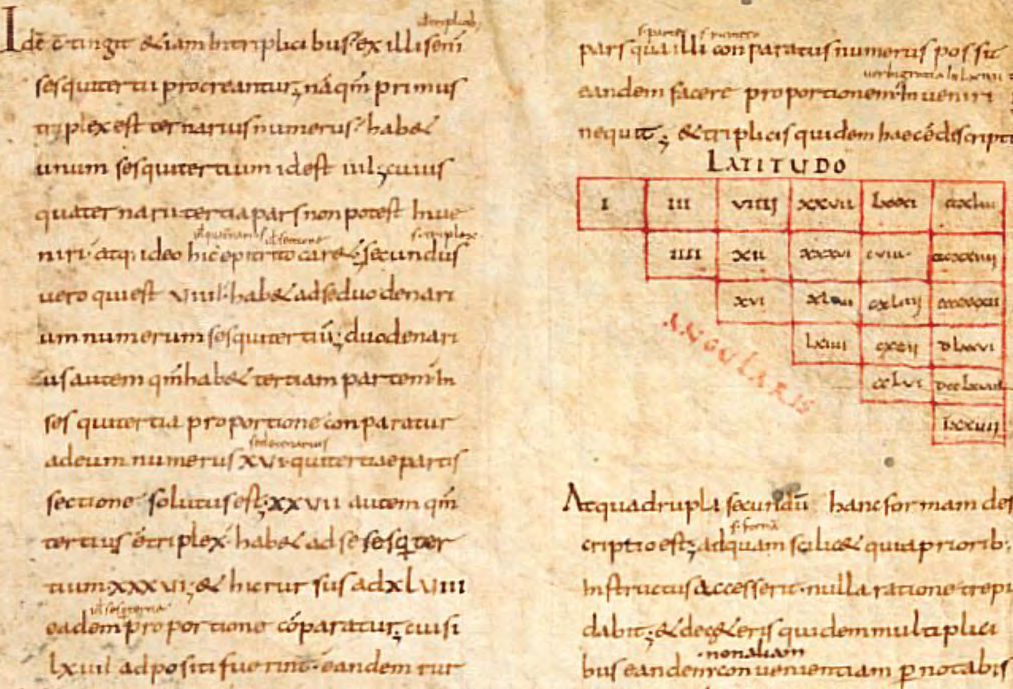 Idē c̄tingit & iam in triplicibus. ex illis eni
sesquitertii procreantur; nā qm̄ primus
triplex est ternarius numerus. hab&
unum sesquitertium id est iiii; cuius
quaternarii tertia pars non potest inue
niri. atq; ideo hic epitrito car&. secundus
uero qui est viiii. hab& ad se duodenari
um numerum sesquitertiū; duodenari
us autem qm̄ hab& tertiam partem in
sesquitertia proportione conparatur
sedecenarius
ad eum numerus XVI. qui tertiae partis
sectione solutus est; XXVII autem qm̄
tertius ē triplex. hab& ad se sesq̄ter
tium XXXVI; & hic rursus ad XLVIII
eadem proportione cōparatur; cui si
lxiiii adpositi fuerint. eandem rur
pars qua illi conparatus numerus possit
eandem facere proportionem inueniri
nequit; & triplicis quidem haec ē descripti
LATITUDO
I III VIIII XXVII LXXXI CCXLIII
IIII XII XXXVI CVIII CCCXXIIII
XVI XLVIII CXLIIII CCCCXXXII
LXIIII CXCII DLXXVI
CCLVI DCCLXVIII
ANGULARIS
At quadrupla secundū hanc formam des
s. formā
criptio est; ad quam scilic& quia priorib;
instructus accesserit. nulla ratione trepi
dabit; & de c&eris quidem multiplici
non aliam
bus eandem conuenientiam p̲notabis